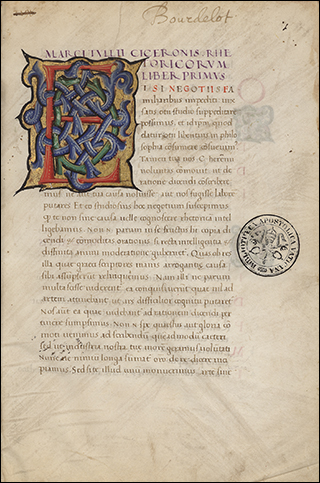 Bourdelot
MARCI TVLLII CICERONIS RHE
TORICORVM
LIBER PRIMVS
ETSI NEGOTIIS FA
miliaribus impediti uix
satis otii studio suppeditare
possimus, et id ipsum quod
datur otii libentius in philo
sophia consumere
Tamen tua nos C. herenni
uoluntas commouit ut de
ratione dicendi
ne aut tua causa noluisse aut nos fugisse labore
putares. Et eo studiosius hoc negotium suscepimus
te non sine causa uelle cognoscere rhetoricā intel
ligebamus. Non parum in se fructus
dicendi et commoditas orationis si recta intelligentia et
diffinita animi moderatione gubernetur. Quas ob res
illa quae graeci scriptores inanis arrogantiae causa
sibi assumpserunt reliquimus. Nam illi ne parum
multa scisse uiderentur ea conquisierunt quae nihil ad
artem attinebant ut ars difficilior cognitu putaretur
Nos aut ea quae uidebantur ad rationem dicendi per
tinere sumpsimus. Non spe quaestus aut gloria co
moti uenimus ad scribendū quē ad modū caeteri
sed ut industria nostra tuae morē geramus uoluntati
Nunc ne nimium longa sumat oro de re dicere inci
piamus. Sed si te illud unū monuerimus arte sine
BIBLIOTHECA APOSTOLICA VATICANA